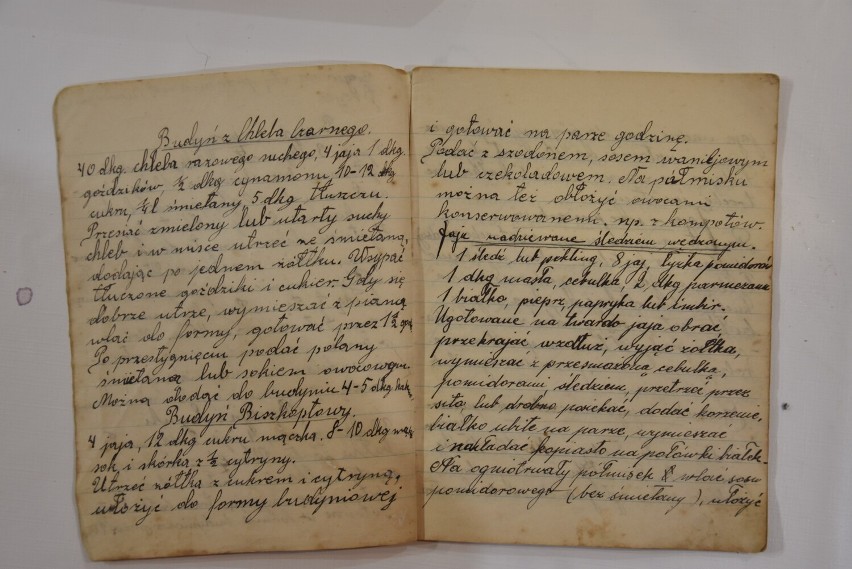 Budyń z Chleba Czarnego.
40 dkg. chleba razowego suchego, 4 jaja 1 dkg.
goździków, ½ dkg cynamonu, 10-12 dkg
cukru, ¼ l śmietany, 5 dkg tłuszczu.
Przesiać zmielony lub utarty suchy
chleb i w misce utrzeć ze śmietaną,
dodając po jednem żółtku. Wsypać
tłuczone goździki i cukier. Gdy się
dobrze utrze, wymieszać z pianą
wlać do formy, gotować przez 1½ godz
Po przestygnięciu podać polany
śmietaną lub sokiem owocowym.
Można dodać do budyniu 4-5 dkg kak.
Budyń Biszkoptowy.
4 jaja, 12 dkg cukru mączka. 8-10 dkg mąki
sok, i skórka z ½ cytryny.
Utrzeć żółtka z cukrem i cytryną,
włożyć do formy budyniowej
i gotować na parze godzinę.
Podać z szodonem, sosem waniljowym
lub czekoladowem. Na półmisku
można też obłożyć owocami
konserwowanemi. np. z kompotów.
Jaja nadziewane śledziem wędzonym.
1 śledź lub pikling, 8 jaj, łyżka pomidorów
1 dkg masła, cebulka, 2 dkg parmezanu
1 białko, pieprz, papryka lub imbir.
Ugotowane na twardo jaja obrać,
przekrajać wzdłuż, wyjąć żółtka,
wymieszać z przesmażoną cebulką,
pomidorami, śledziem, przetrzeć przez
sito, lub drobno posiekać, dodać korzenie,
białko ubite na parze, wymieszać
i nakładać kopiasto na połówki białek.
Na ogniotrwały półmisek wlać sosu
pomidorowego (bez śmietany), ułożyć